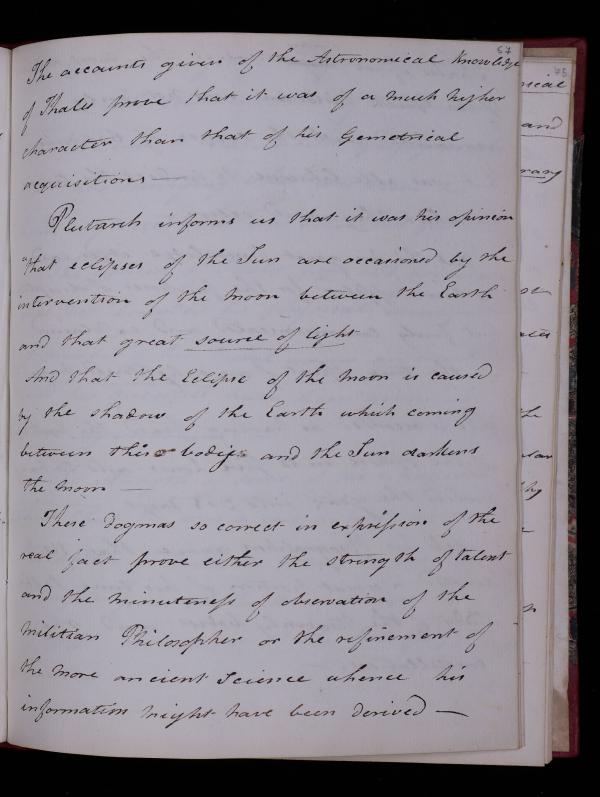 67
The accounts given of the Astronomical Knowledge
of Thales prove that it was of a much higher
character than that of his Gemetrical
acquisitions —
Plutarch informs us that it was his opinion
"that eclipses of the Sun are occasioned by the
intervention of the Moon between the Earth
and that great source of light
And that the Eclipse of the Moon is caused
by the shadow of the Earth which coming
between this body and the Sun darkens
the Moon —
These dogmas so correct in expression of the
real fact prove either the strength of talent
and the minuteness of observation of the
Militian Philosopher or the refinement of
the more ancient Science whence his
information might have been derived —
75
and
the